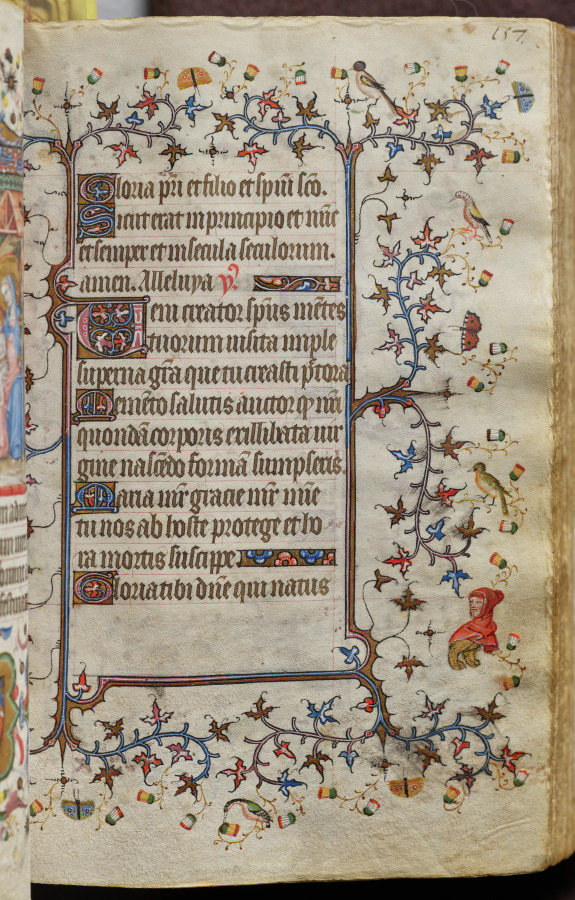 157.
Gloria pr̄i et filio et spūi scō.
Sicut erat in principio et nūc
et semper et in secula seculorum.
amen. Alleluya. ps̄
Veni creator spūs mētes
tuorum uisita imple
superna grā que tu creasti pectora
Memēto salutis auctor qp̄ nr̄i
quondā corporis ex illibata uir
gine nascēdo formā sumpseris.
Maria mr̄ gracie mr̄ mīe
tu nos ab hoste protege et ho
ra mortis suscippe
Gloria tibi dn̄e qui natus